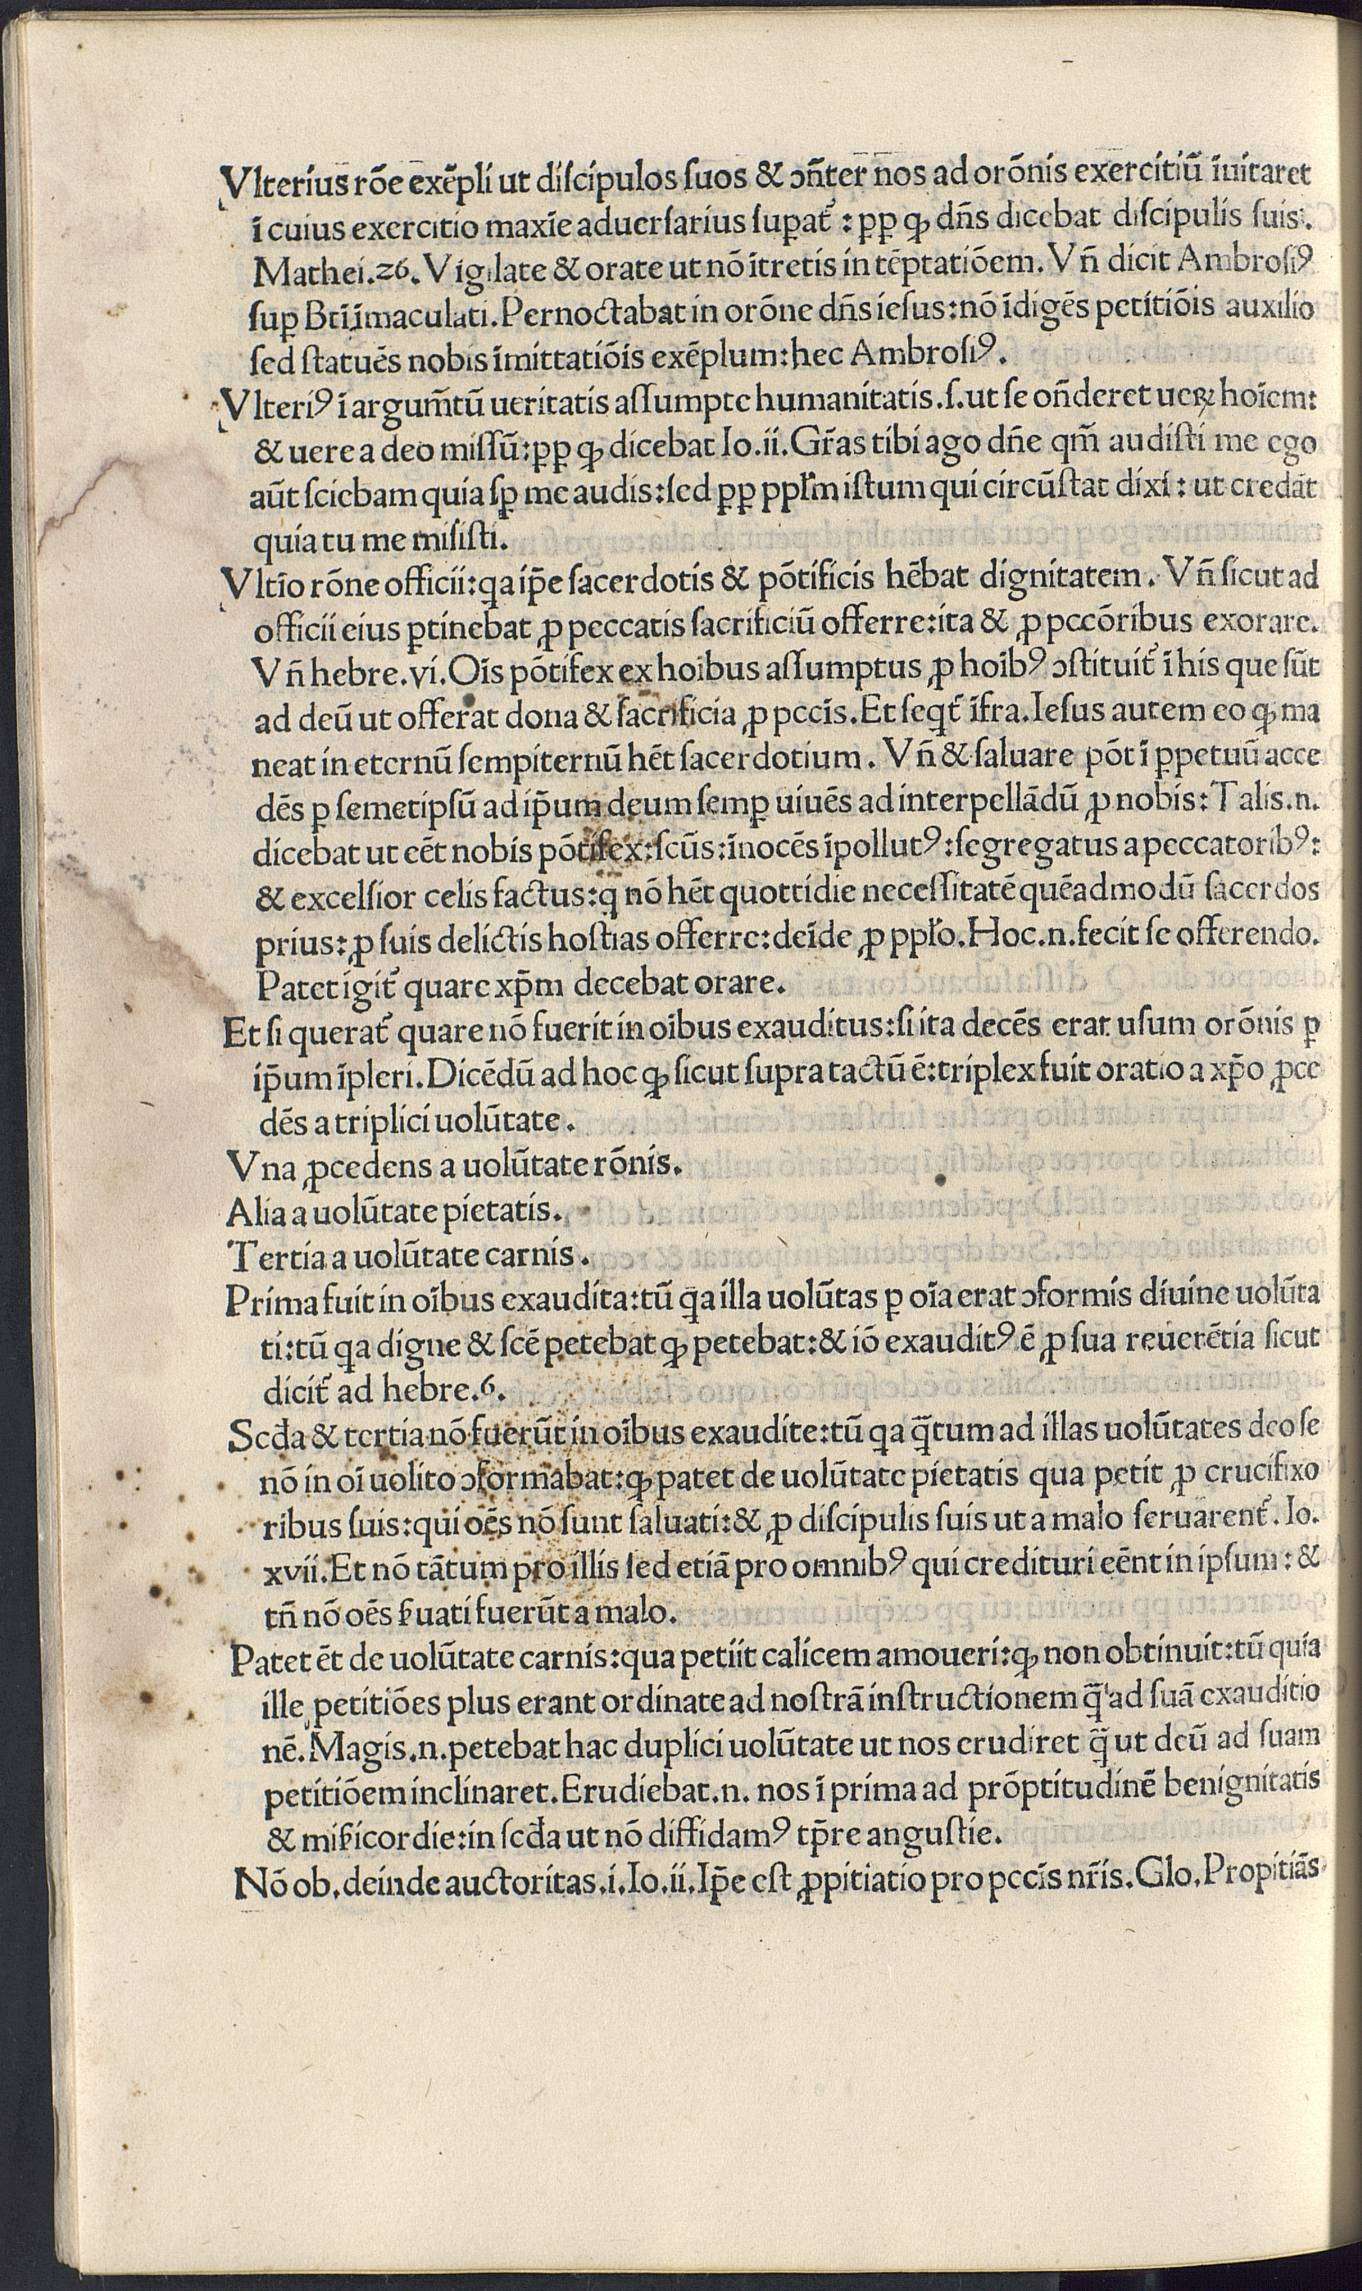 Vlterius rōe exēpli ut diſcipulos ſuos & ↄñter nos ad orōnis exercitiū ĩuitaret
ĩ cuius exercitio maxĩe aduerſarius ſuꝑat᷑ : ꝓp ꝙ dñs dicebat diſcipulis ſuis.
Mathei.26. Vigilate & orate ut nō ĩtretis in tēptatiōem. Vñ dicit Ambroſiꝰ
ſuꝑ Bt̄i ĩmaculati. Pernoctabat in orōne dñs ieſus: nō ĩdigēs petitiōis auxilio
ſed ſtatuēs nobis ĩmittatiōis exēplum: hec Ambroſiꝰ.
Vlteriꝰ ĩ argum̄tū ueritatis aſſumpte humanitatis.ſ. ut ſe on̄deret ueꝝ hoĩem:
& uere a deo miſſū: ꝓp ꝙ dicebat Io.ii. Gr̄as tibi ago dñe qm̄ audiſti me ego
aūt ſciebam quia ſꝑ me audis: ſed ꝓp ppl̄m iſtum qui circūſtat dixi: ut credāt
quia tu me miſiſti.
Vltĩo rōne officii: qa ip̄e ſacerdotis & pōtificis hēbat dignitatem. Vñ ſicut ad
officii eius ꝑtinebat ꝓ peccatis ſacrificiū offerre: ita & ꝓ pccōribus exorare.
Vñ hebre.vi. Oĩs pōtifex ex hoĩbus aſſumptus ꝓ hoĩbꝰ ↄſtituit᷑ ĩ his que ſūt
ad deū ut offerat dona & ſacrificia ꝓ pccĩs. Et ſeqt᷑ ĩfra. Ieſus autem eo ꝙ ma
neat in eternū ſempiternū hēt ſacerdotium. Vñ & ſaluare pōt ĩ ꝑpetuū acce
dēs ꝑ ſemetipſū ad ip̄um deum ſemꝑ uiuēs ad interpellādū ꝓ nobis: Talis.n.
dicebat ut eēt nobis pōtifex: ſcūs: ĩnocēs ĩpollutꝰ: ſegregatus a peccatoribꝰ:
& excelſior celis factus: q nō hēt quottidie neceſſitatē quēadmodū ſacerdos
prius: ꝓ ſuis delictis hoſtias offerre: deĩde ꝓ ppl̄o. Hoc.n. fecit ſe offerendo.
Patet igit᷑ quare xp̄m decebat orare.
Et ſi querat᷑ quare nō fuerit in oĩbus exauditus: ſi ita decēs erat uſum orōnis ꝑ
ip̄um ĩpleri. Dicēdū ad hoc ꝙ ſicut ſupra tactū ē: triplex fuit oratio a xp̄o ꝓce
dēs a triplici uolūtate.
Vna ꝓcedens a uolūtate rōnis.
Alia a uolūtate pietatis.
Tertia a uolūtate carnis.
Prima fuit in oĩbus exaudita: tū q̄a illa uolūtas ꝑ oĩa erat ↄformis diuine uolūta
ti: tū qa digne & ſcē petebat ꝙ petebat: & iō exauditꝰ ē ꝓ ſua reuerētia ſicut
dicit᷑ ad hebre.6.
Scđa & tertia nō fuerūt in oĩbus exaudite: tū qa q̄tum ad illas uolūtates deo ſe
nō in oĩ uolito ↄformabat: ꝙ patet de uolūtate pietatis qua petit ꝓ crucifixo
ribus ſuis: qui oēs nō ſunt ſaluati: & ꝓ diſcipulis ſuis ut a malo ſeruarent᷑. Io.
xvii. Et nō tātum pro illis ſed etiā pro omnibꝰ qui credituri eēnt in ipſum: &
tñ nō oēs ẜuati fuerūt a malo.
Patet ēt de uolūtate carnis: qua petiit calicem amoueri: ꝙ non obtinuit: tū quia
ille petitiōes plus erant ordinate ad noſtrā inſtructionem q̄ ad ſuā exauditio
nē. Magis.n. petebat hac duplici uolūtate ut nos erudiret q̄ ut deū ad ſuam
petitiōem inclinaret. Erudiebat.n. nos ĩ prima ad prōptitudinē benignitatis
& miẜicordie: in ſcđa ut nō diffidamꝰ tp̄re anguſtie.
Nō ob. deinde auctoritas.i. Io.ii. Ip̄e eſt ꝓpitiatio pro pccĩs nr̄is. Glo. Propitiās